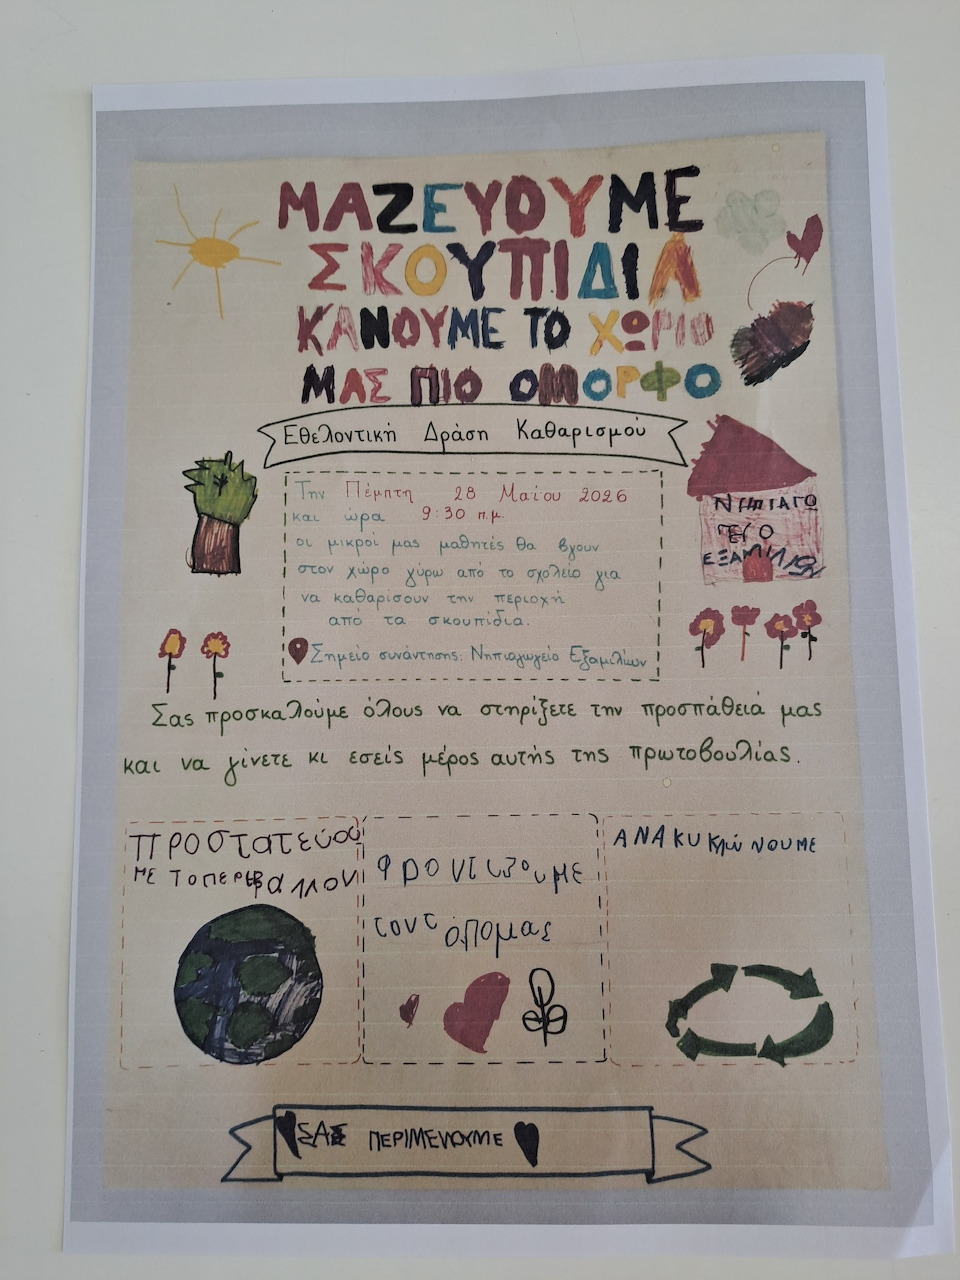 ΜΑΖΕΥΟΥΜΕ
ΣΚΟΥΠΙΔΙΑ
ΚΑΝΟΥΜΕ ΤΟ ΧΩΡΙΟ
ΜΑΣ ΠΙΟ ΟΜΟΡΦΟ
Εθελοντική Δράση Καθαρισμού
Την Πέμπτη 28 Μαΐου 2026
και ώρα 9:30 π.μ.
οι μικροί μας μαθητές θα βγουν
στον χώρο γύρω από το σχολείο για
να καθαρίσουν την περιοχή
από τα σκουπίδια.
Σημείο συνάντησης: Νηπιαγωγείο Εξαμιλίων
ΝΗΠΙΑΓΩ
ΓΕΙΟ
ΕΞΑΜΙΛΙΩΝ
Σας προσκαλούμε όλους να στηρίξετε την προσπάθειά μας
και να γίνετε κι εσείς μέρος αυτής της πρωτοβουλίας.
ΠΡΟΣΤΑΤΕΥΟΥ
ΜΕ ΤΟ ΠΕΡΙΒΑΛΛΟΝ
ΦΡΟΝΤΙΖΟΥΜΕ
ΑΝΑΚΥΚΛΩΝΟΥΜΕ
ΣΑΣ ΠΕΡΙΜΕΝΟΥΜΕ